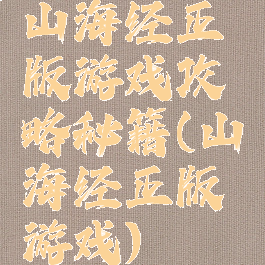 山海经正
版游戏攻
略秘籍(山
海经正版
游戏)